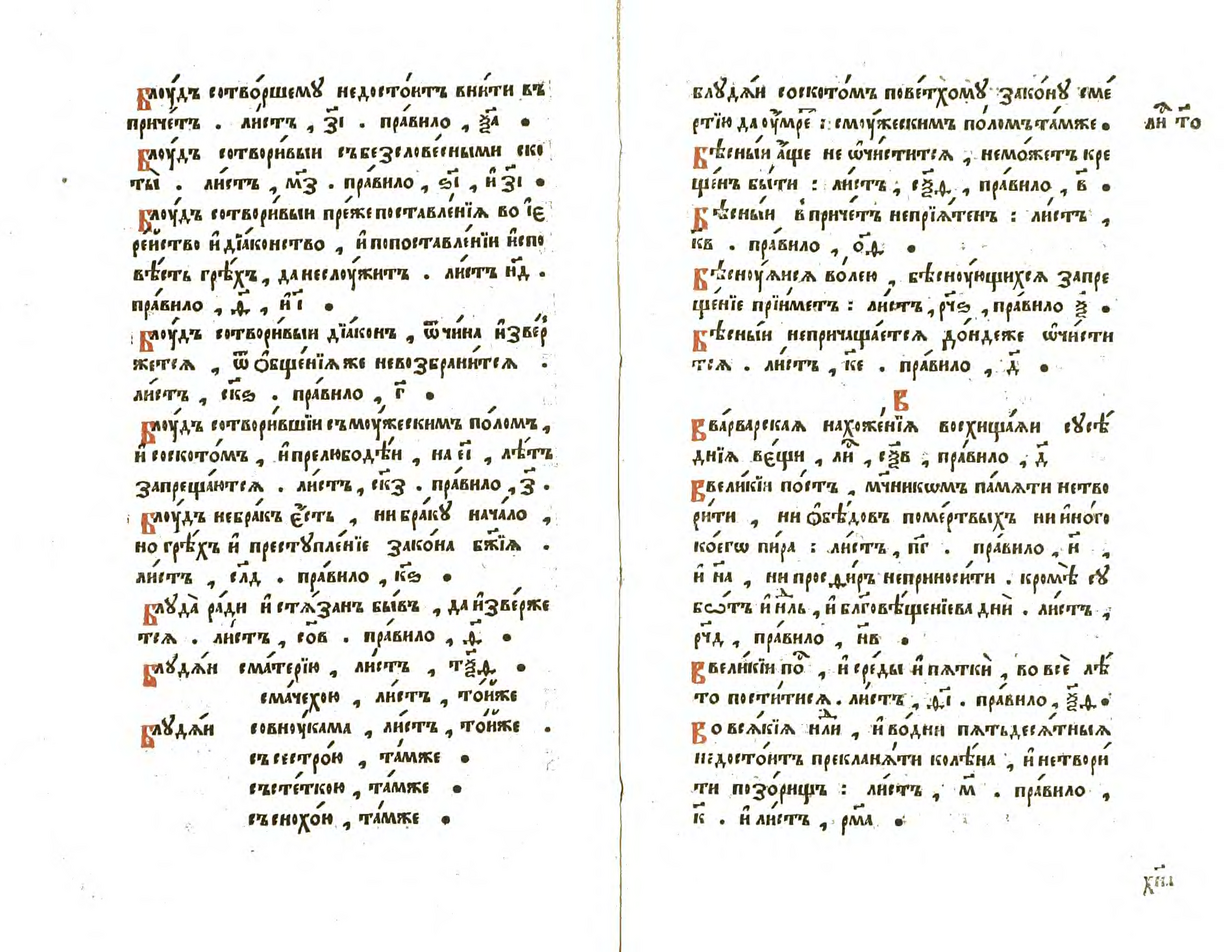 Блоу́дъ сотво́ршемꙋ недосто́итъ вни́ти въ
при́четъ . ли́стъ , з҃і . пра́вило , ѯ҃а •
Блоу́дъ сотвори́выи събезслове́сными ско
ты̀ . ли́стъ , м҃з . пра́вило , ѕ҃і , и҆ з҃і •
Блоу́дъ сотвори́выи пре́жепоставле́нїѧ во і҆є
ре́йство и҆дїа́конство , и҆попоставле́нїи и҆спо
вѣ́сть грѣ́хъ , данеслоу́житъ . ли́стъ н҃д .
пра́вило , ѳ҃ , и҆ і҃ •
Блоу́дъ сотвори́выи дїа́конъ , ѿчина и҆зве́р
жетсѧ , ѿ ѻ҆бще́нїѧже невозбрани́тсѧ .
ли́стъ , ск҃ѕ . пра́вило , г҃ •
Блоу́дъ сотвори́вшїи съмоу́жескимъ по́ломъ ,
и҆ соско́томъ , и҆прелюбодѣ́и , на є҃і , лѣ́тъ
запреща́ютсѧ . ли́стъ , ск҃з . пра́вило , з҃ .
Блоу́дъ небра́къ є҆́сть , нибра́кꙋ нача́ло ,
но грѣ́хъ и҆ престꙋпле́нїе зако́на бж҃їѧ .
ли́стъ , сл҃д . пра́вило , к҃ѕ •
Блꙋда̀ ра́ди и҆стѧ́занъ бы́въ , даи҆зве́рже
тсѧ . ли́стъ , со҃в . пра́вило , ѳ҃ •
Блꙋдѧ́и сма́терїю , ли́стъ , тѯ҃ѳ •
сма́чехою , ли́стъ , то́йже
Блꙋдѧ́и совноу́кама , ли́стъ , то́йже .
съсестро́ю , та́мже •
състе́ткою , та́мже •
съснохо́ю , та́мже •
блꙋдѧ́и соско́томъ пове́тхомꙋ зако́нꙋ сме́
ртїю даоу҆́мре : смоу́жескимъ по́ломъта́мже •
Бѣ́сныи а҆́ще не ѡ҆чи́ститсѧ , немо́жетъ кре
ще́нъ бы́ти : ли́стъ , сѯ҃ѳ , пра́вило , в҃ •
Бѣ́сныи впри́четъ непрїѧ́тенъ : ли́стъ ,
к҃в . пра́вило , о҃ѳ •
Бѣсноу́ѧисѧ во́лею , бѣсноу́ющихсѧ запре
ще́нїе прїи́метъ : ли́стъ , рч҃ѕ , пра́вило ѯ҃ •
Бѣ́сныи непричаща́етсѧ до́ндеже ѡ҆чи́сти
тсѧ . ли́стъ , к҃е . пра́вило , д҃ •
В
Вва́рварскаѧ нахоже́нїѧ восхища́ѧи сꙋсѣ́
днїѧ ве́щи , ли , сѯ҃в , пра́вило , д҃
Ввели́кїи по́стъ , мч҃никѡмъ па́мѧти нетво
ри́ти , ни ѻ҆бѣ́довъ поме́ртвыхъ ни и҆но́го
ко́егѡ пи́ра : ли́стъ , п҃г . пра́вило , н҃ ,
и҆ н҃а , ни просѳи́ръ неприноси́ти . кромѣ̀ сꙋ
бѡ́тъ и҆ нл҃ь , и҆ бл҃говѣще́нїева днѝ . ли́стъ ,
рч҃д , пра́вило , н҃в •
Ввели́кїи по , и҆ сре́ды и҆ пѧ́ткѝ , во всѐ лѣ́
то пости́тисѧ . ли́стъ , ѳ҃і . пра́вило , ѯ҃ѳ •
Во всѧ́кїѧ нли , и҆ во́дни пѧтьдесѧ́тныѧ
недосто́итъ преклана́ти колѣ́на , и҆ нетвори́
ти позо́рищъ : ли́стъ , м҃ . пра́вило ,
к҃ . и҆ ли́стъ , рм҃а •
ли то